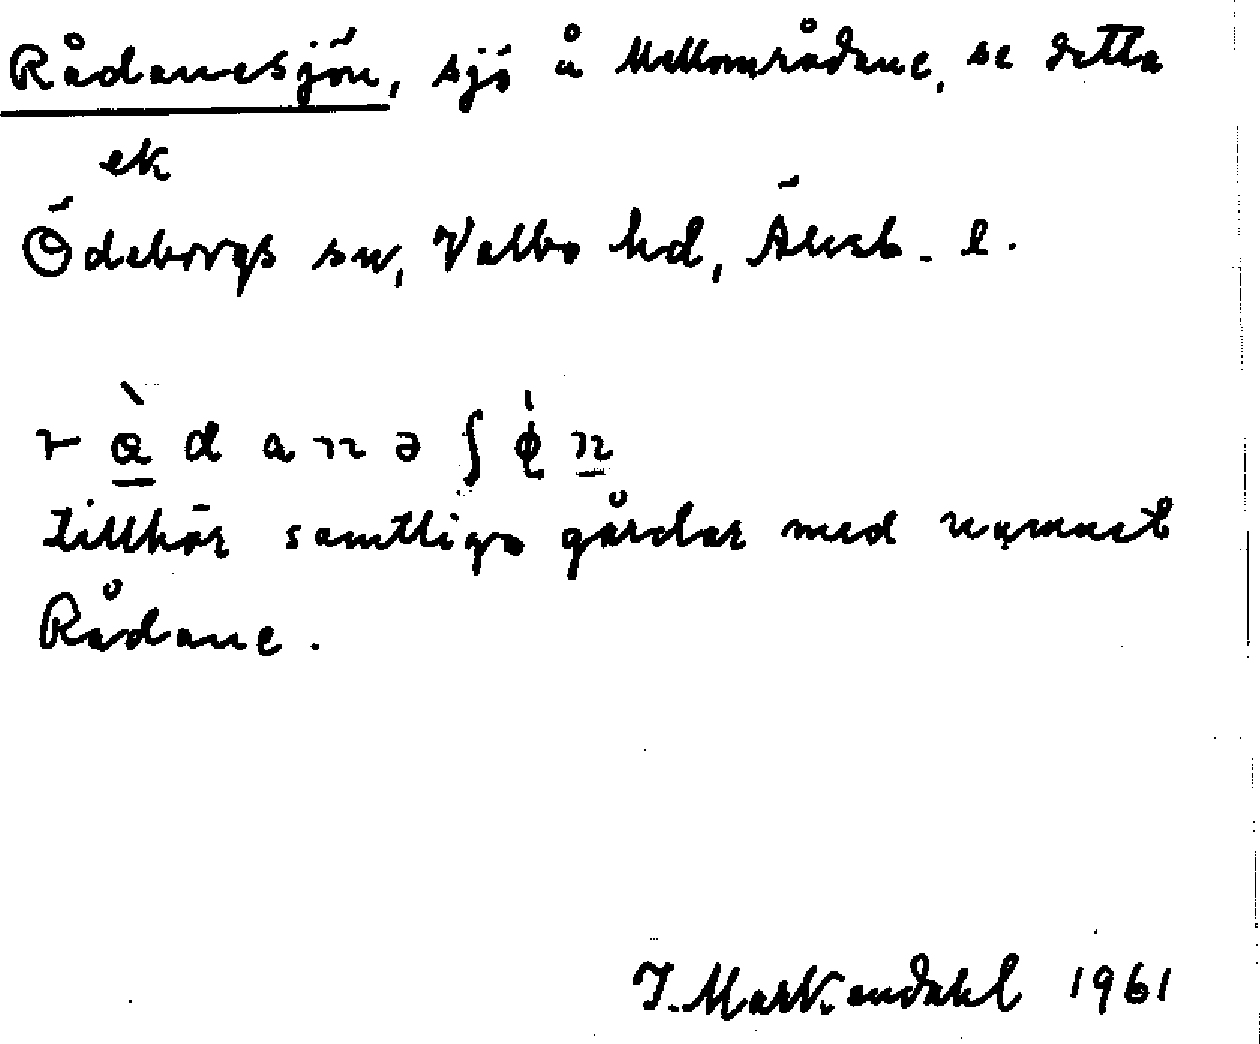 Rådanesjön, sjö å Mellområdane, se detta
ek
Ödeborgs sn, Valbo hd, Älvsb. l.
r å̀ d a n ə ʃ ø̍ n
tillhör samtliga gårdar med namnet
Rådane.
J. Markendahl 1961